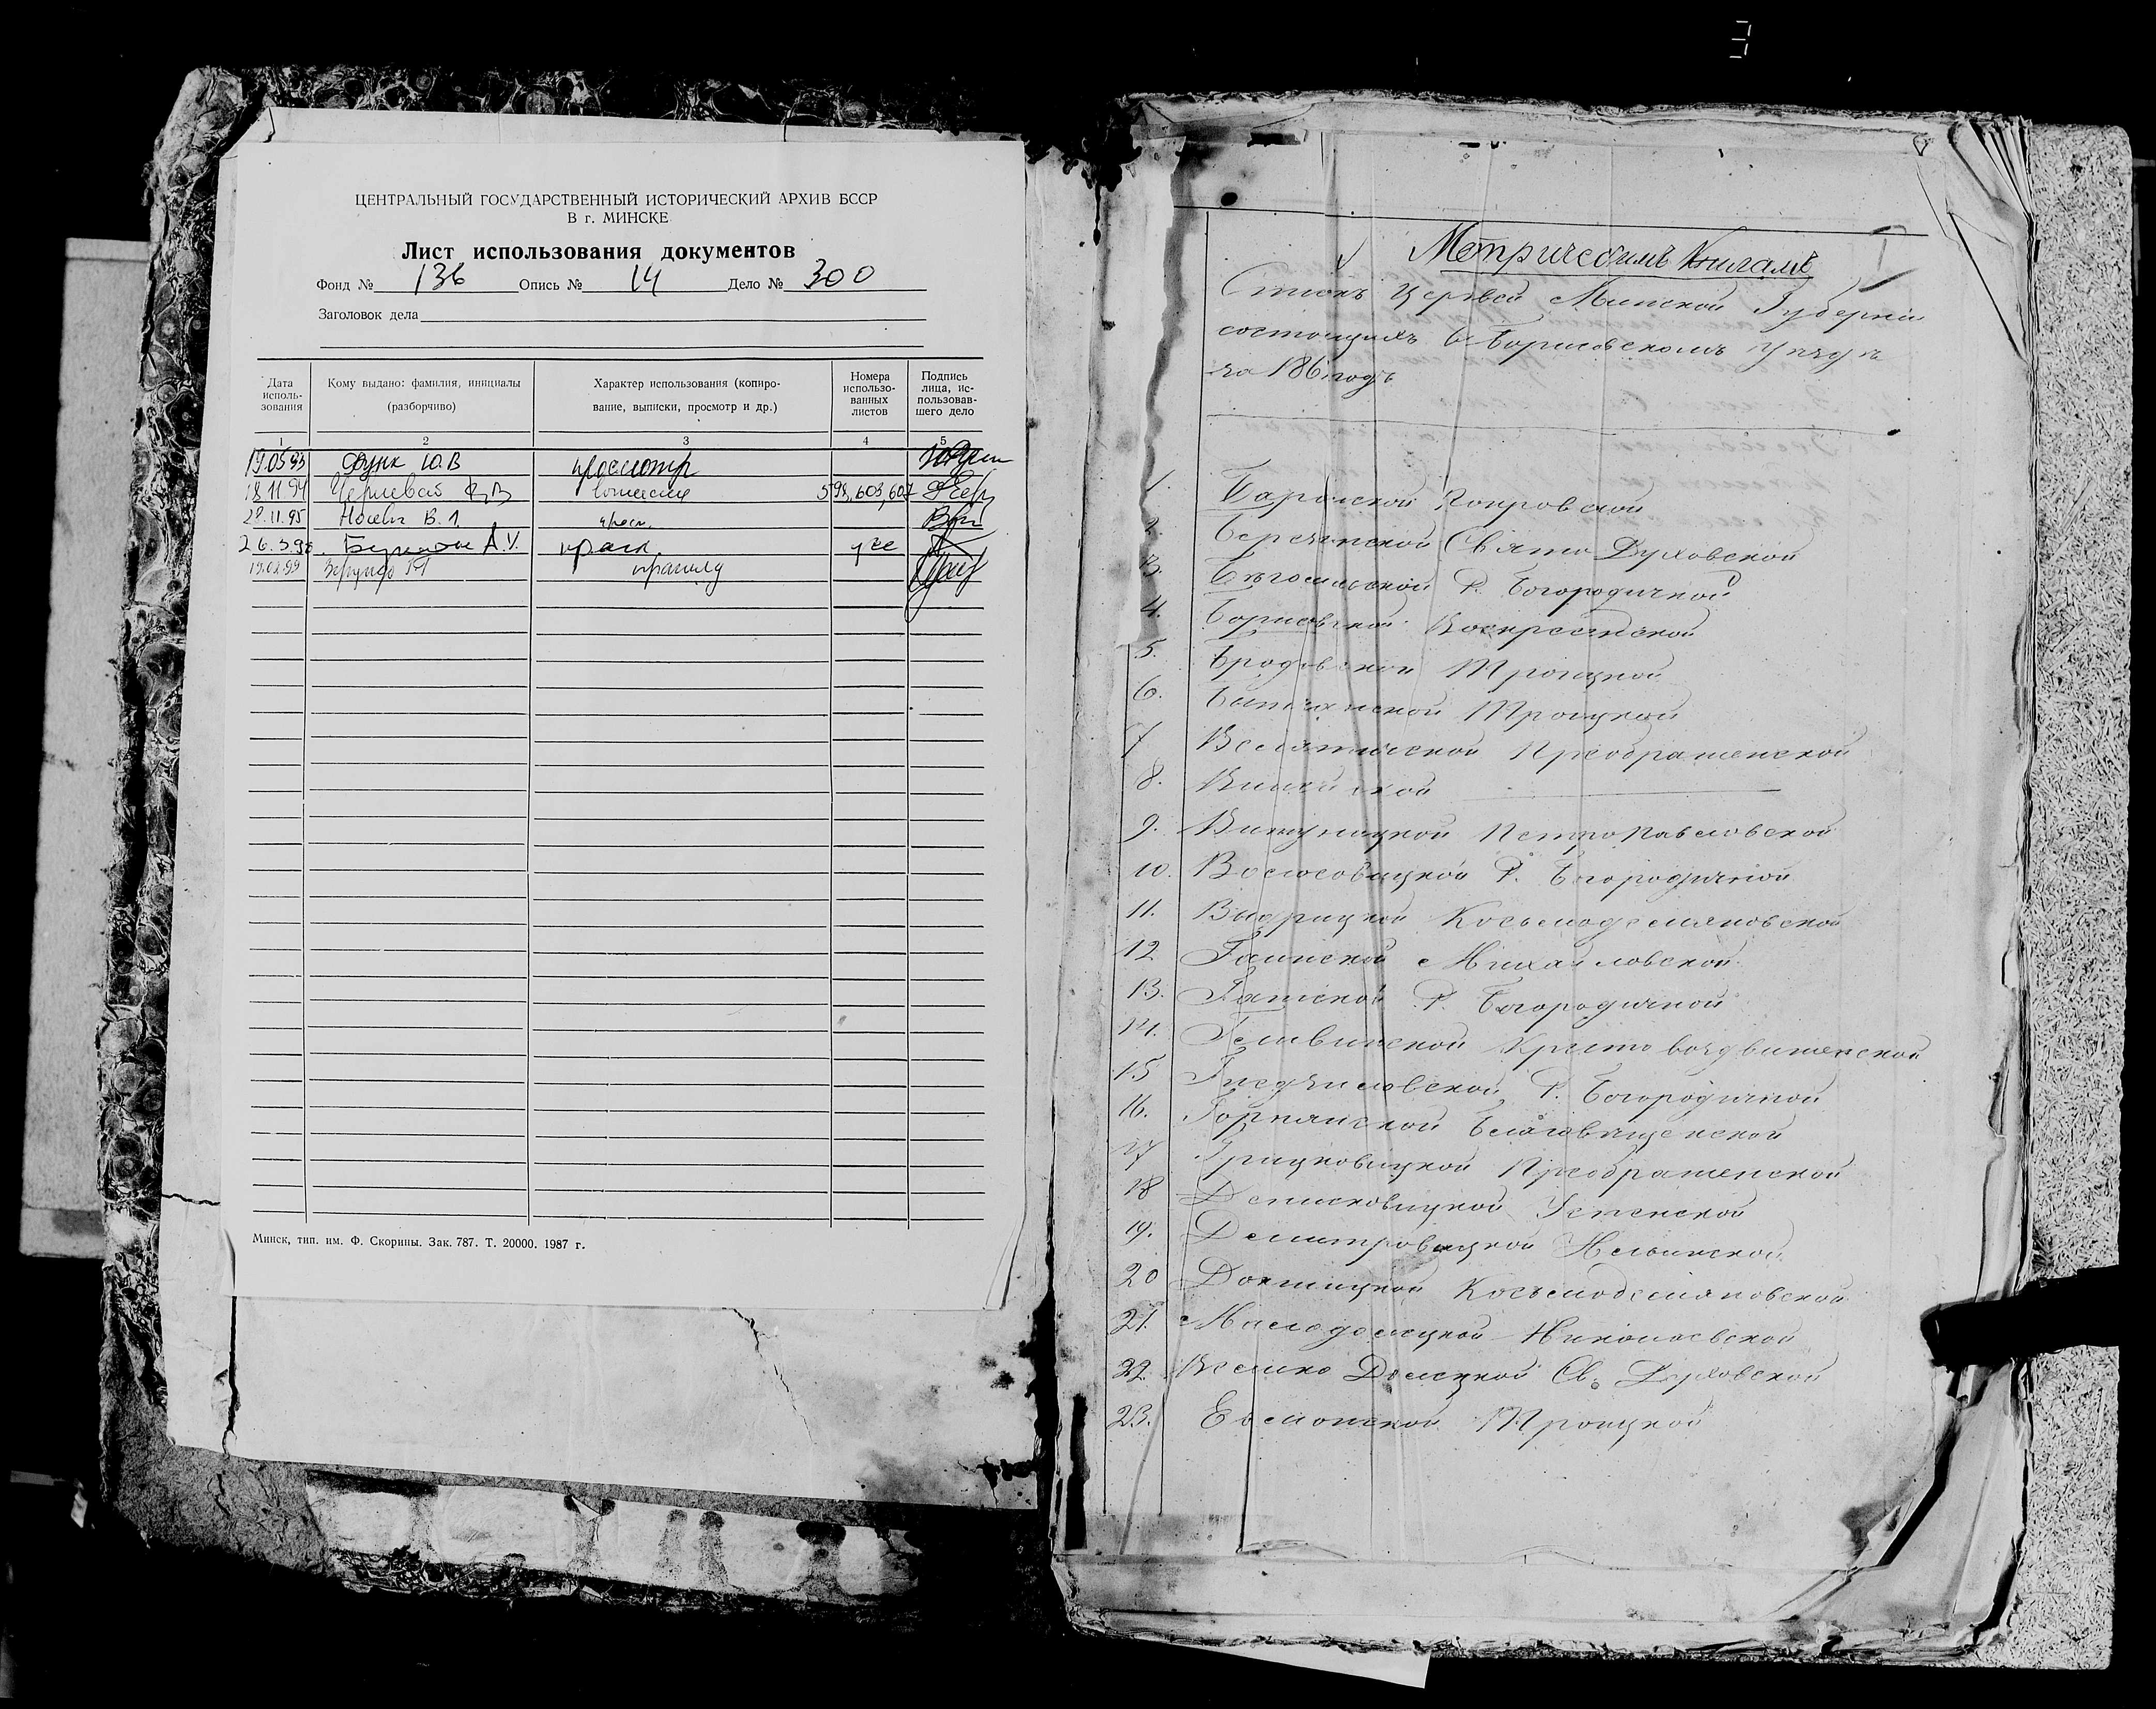 ЦЕНТРАЛЬНЫЙ ГОСУДАРСТВЕННЫЙ ИСТОРИЧЕСКИЙ АРХИВ БССР
В г. МИНСКЕ
Лист использования документов
Фонд № 136 Опись № 14 Дело № 300
Заголовок дела
Дата исполь-зования
Кому выдано: фамилия, инициалы (разборчиво)
Характер использования (копиро-вание, выписки, просмотр и др.)
Номера использо-ванных листов
Подпись лица, ис-пользовав-шего дело
1 2 3 4 5
19.05.93 Функ Ю.В просмотр
18.11.94 598, 603, 607
28.11.95 Носевич В.Л. просм.
26.3.98
19.02.99
Минск, тип. им. Ф. Скорины. Зак. 787. Т. 20000. 1987 г.
Метрическимъ Книгамъ
Списокъ церквей Минской Губерніи
состоящихъ въ Борисовскомъ уѣздѣ
за 186 годъ
1. Баранской Покровской
2. Березинской Свято Духовской
3. Бѣгомльской Р. Богородичной
4. Борисовской Воскресенской
5. Бродовской Троицкой
6. Битчанской Троицкой
7 Велятичской Преображенской
8.
9. Витуницкой Петро Павловской
10. Волосовицкой Р. Богородичной
11. Выдрицкой Косьмодемяновской
12 Гаинской Михайловской
13. Гатской Р. Богородичной
14. Гливинской Крестовоздвиженской
15 Гнездиловской Р. Богородичной
16. Горнянской Благовѣщенской
17 Грицковицкой Преображенской
18 Денисковицкой Успенской
19. Демитровицкой Ильинской
20 Докшицкой Косьмодемяновской
21. Мало долецкой Николаевской
22. Велико Долецкой Св. Духовской
23. Есмонской Троицкой